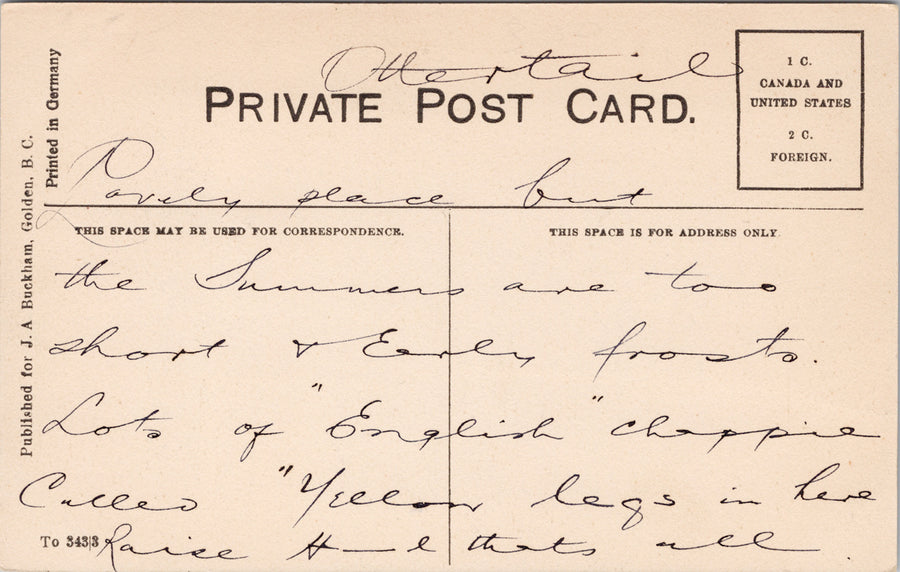 Ottertail
PRIVATE POST CARD.
1 C.
CANADA AND
UNITED STATES
2 C.
FOREIGN.
Printed in Germany
Published for J. A Buckham, Golden, B. C.
Lovely place but
THIS SPACE MAY BE USED FOR CORRESPONDENCE.
THIS SPACE IS FOR ADDRESS ONLY.
the Summers are too
short & Early frosts.
Lots of "English" chappie
Called "Yellow legs in here
To 3433
Raise H—l thats all.